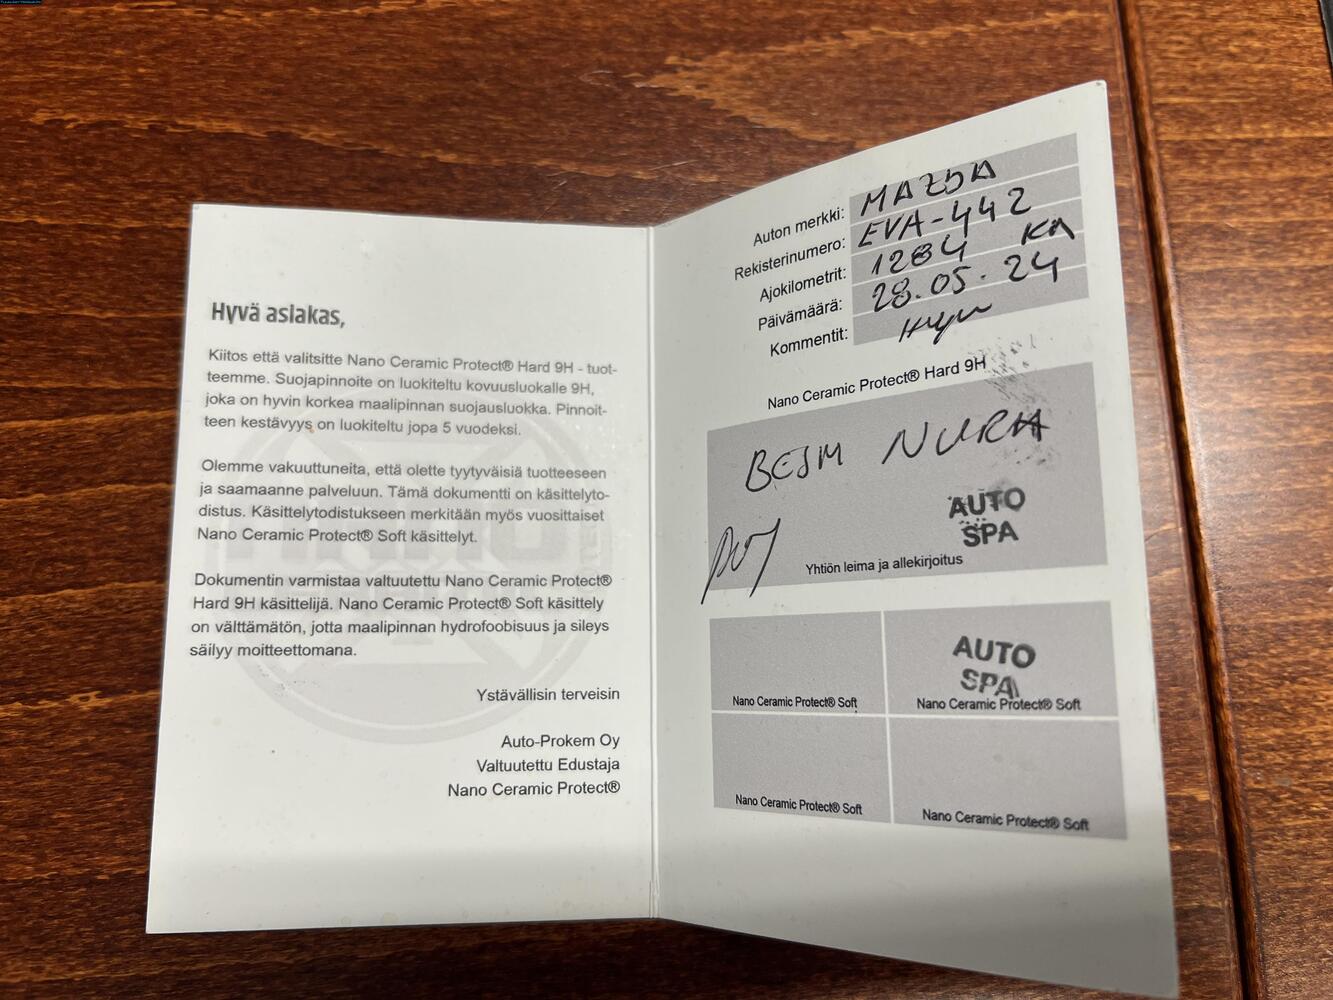 Hyvä asiakas,
Kiitos että valitsitte Nano Ceramic Protect® Hard 9H - tuot-
teemme. Suojapinnoite on luokiteltu kovuusluokalle 9H,
joka on hyvin korkea maalipinnan suojausluokka. Pinnoit-
teen kestävyys on luokiteltu jopa 5 vuodeksi.
Olemme vakuuttuneita, että olette tyytyväisiä tuotteeseen
ja saamaanne palveluun. Tämä dokumentti on käsittelyto-
distus. Käsittelytodistukseen merkitään myös vuosittaiset
Nano Ceramic Protect® Soft käsittelyt.
Dokumentin varmistaa valtuutettu Nano Ceramic Protect®
Hard 9H käsittelijä. Nano Ceramic Protect® Soft käsittely
on välttämätön, jotta maalipinnan hydrofoobisuus ja sileys
säilyy moitteettomana.
Ystävällisin terveisin
Auto-Prokem Oy
Valtuutettu Edustaja
Nano Ceramic Protect®
Auton merkki: MAZDA
Rekisterinumero: EVA-442
Ajokilometrit: 1284 KM
Päivämäärä: 28.05.24
Kommentit:
Nano Ceramic Protect® Hard 9H
BESM NURA
AUTO
SPA
Yhtiön leima ja allekirjoitus
Nano Ceramic Protect® Soft
AUTO
SPA
Nano Ceramic Protect® Soft
Nano Ceramic Protect® Soft
Nano Ceramic Protect® Soft